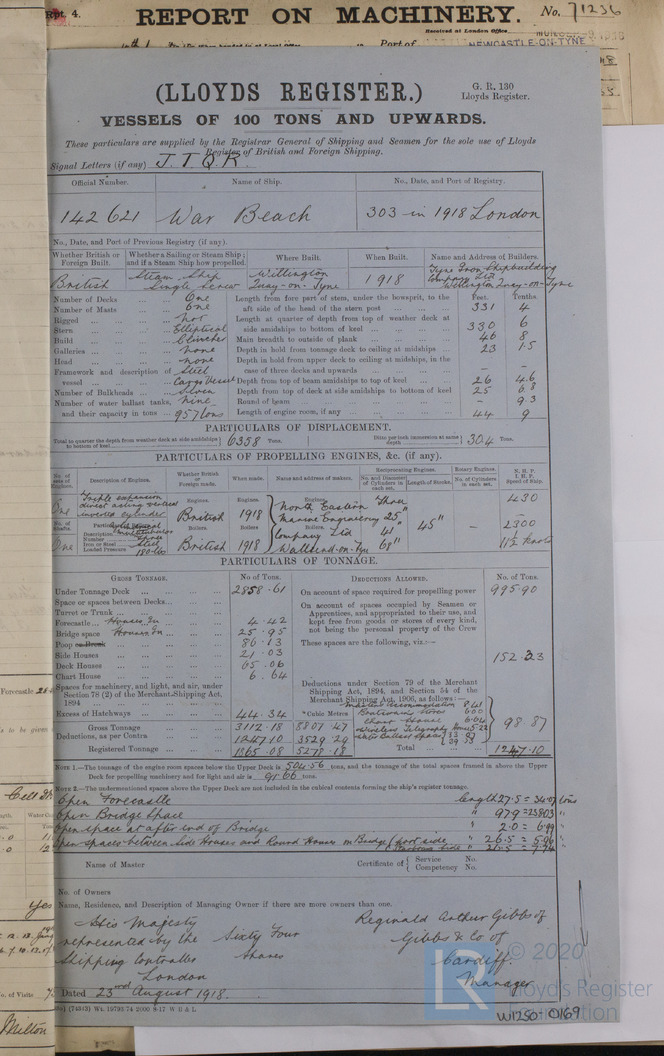 Rpt. 4.
REPORT ON MACHINERY.
No. 71236
Received at London Office
Port of
NEWCASTLE-ON-TYNE
(LLOYDS REGISTER.)
G. R. 130
Lloyds Register.
VESSELS OF 100 TONS AND UPWARDS.
These particulars are supplied by the Registrar General of Shipping and Seamen for the sole use of Lloyds
Register of British and Foreign Shipping.
Signal Letters (if any) J. T. Q. K.
Official Number. Name of Ship. No., Date, and Port of Registry.
142621 War Beach 303 in 1918 London
No., Date, and Port of Previous Registry (if any).
Whether British or Foreign Built. Whether a Sailing or Steam Ship; and if a Steam Ship how propelled. Where Built. When Built. Name and Address of Builders.
British Steam Ship Single Screw Willington Quay-on-Tyne 1918 Tyne Iron Shipbuilding Company Ltd Willington Quay-on-Tyne
Feet. Tenths.
Number of Decks One Length from fore part of stem, under the bowsprit, to the
Number of Masts One aft side of the head of the stern post 331 4
Rigged not Length at quarter of depth from top of weather deck at
Stern Elliptical side amidships to bottom of keel 330 6
Build Clincher Main breadth to outside of plank 46 8
Galleries none Depth in hold from tonnage deck to ceiling at midships 23 15
Head none Depth in hold from upper deck to ceiling at midships, in the
Framework and description of Steel case of three decks and upwards – –
vessel Cargo Vessel Depth from top of beam amidships to top of keel 26 46
Number of Bulkheads Seven Depth from top of deck at side amidships to bottom of keel 25 68
Number of water ballast tanks, nine Round of beam – 93
and their capacity in tons 957 tons Length of engine room, if any 44 9
PARTICULARS OF DISPLACEMENT.
Total to quarter the depth from weather deck at side amidships to bottom of keel 6358 Tons. Ditto per inch immersion at same depth 30.4 Tons.
PARTICULARS OF PROPELLING ENGINES, &c. (if any).
No. of sets of Engines. Description of Engines. Whether British or Foreign made. When made. Name and address of makers. Reciprocating Engines. Rotary Engines. N. H. P. I. H. P. Speed of Ship.
No. and Diameter of Cylinders in each set. Length of Stroke. No. of Cylinders in each set.
One Triple expansion direct acting vertical inverted cylinder Engines. British Engines. 1918 Engines. North Eastern Marine Engineering Company Ltd Wallsend-on-Tyne Three 25" 41" 68" 45" – 430
No. of Shafts. Particulars Description Number Iron or Steel Steel Loaded Pressure 180 lbs Boilers. Boilers Boilers. 2300
One British 1918 11½ knots
PARTICULARS OF TONNAGE.
GROSS TONNAGE. No. of Tons. DEDUCTIONS ALLOWED. No. of Tons.
Under Tonnage Deck 2858.61 On account of space required for propelling power 995.90
Space or spaces between Decks On account of spaces occupied by Seamen or
Turret or Trunk Apprentices, and appropriated to their use, and
Forecastle Houses In 4.42 kept free from goods or stores of every kind,
Bridge space Houses In 25.95 not being the personal property of the Crew
Poop or Break 86.13 These spaces are the following, viz:—
Side Houses 21.03 152.33
Deck Houses 65.06
Chart House 6.64
Spaces for machinery, and light, and air, under Section 78 (2) of the Merchant Shipping Act, 1894
Deductions under Section 79 of the Merchant
Shipping Act, 1894, and Section 54 of the
Merchant Shipping Act, 1906, as follows:—
Excess of Hatchways 44.34 *Cubic Metres
Boatswains stores 6.00
Chart House 6.04
Wireless Telegraphy House 5.22
Water Ballast Space
98.87
Gross Tonnage 3112.18 8807.47
Deductions, as per Contra 1247.10 3529.29
Registered Tonnage 1865.08 5278.18 Total 1247.10
NOTE 1.—The tonnage of the engine room spaces below the Upper Deck is 504.56 tons, and the tonnage of the total spaces framed in above the Upper
Deck for propelling machinery and for light and air is 98.66 tons.
NOTE 2.—The undermentioned spaces above the Upper Deck are not included in the cubical contents forming the ship's register tonnage.
Open Forecastle length 27.5 = 34.07 tons
Open Bridge Space " 97.9 = 238.03 "
Open space at after end of Bridge " 2.0 = 6.99 "
Open spaces between Side Houses and Round Houses on Bridge port side " 26.5 = 5.06 "
Starboard Side
Name of Master Certificate of Service No.
Competency No.
No. of Owners
Name, Residence, and Description of Managing Owner if there are more owners than one.
His Majesty represented by the Shipping Controller London
Sixty Four shares
Reginald Arthur Gibbs of
Gibbs & Co of
Cardiff.
Manager
Dated 23rd August 1918.
© 2020
Lloyd's Register
Foundation
LR
W1250-0169
Forecastle
Yes
Milton